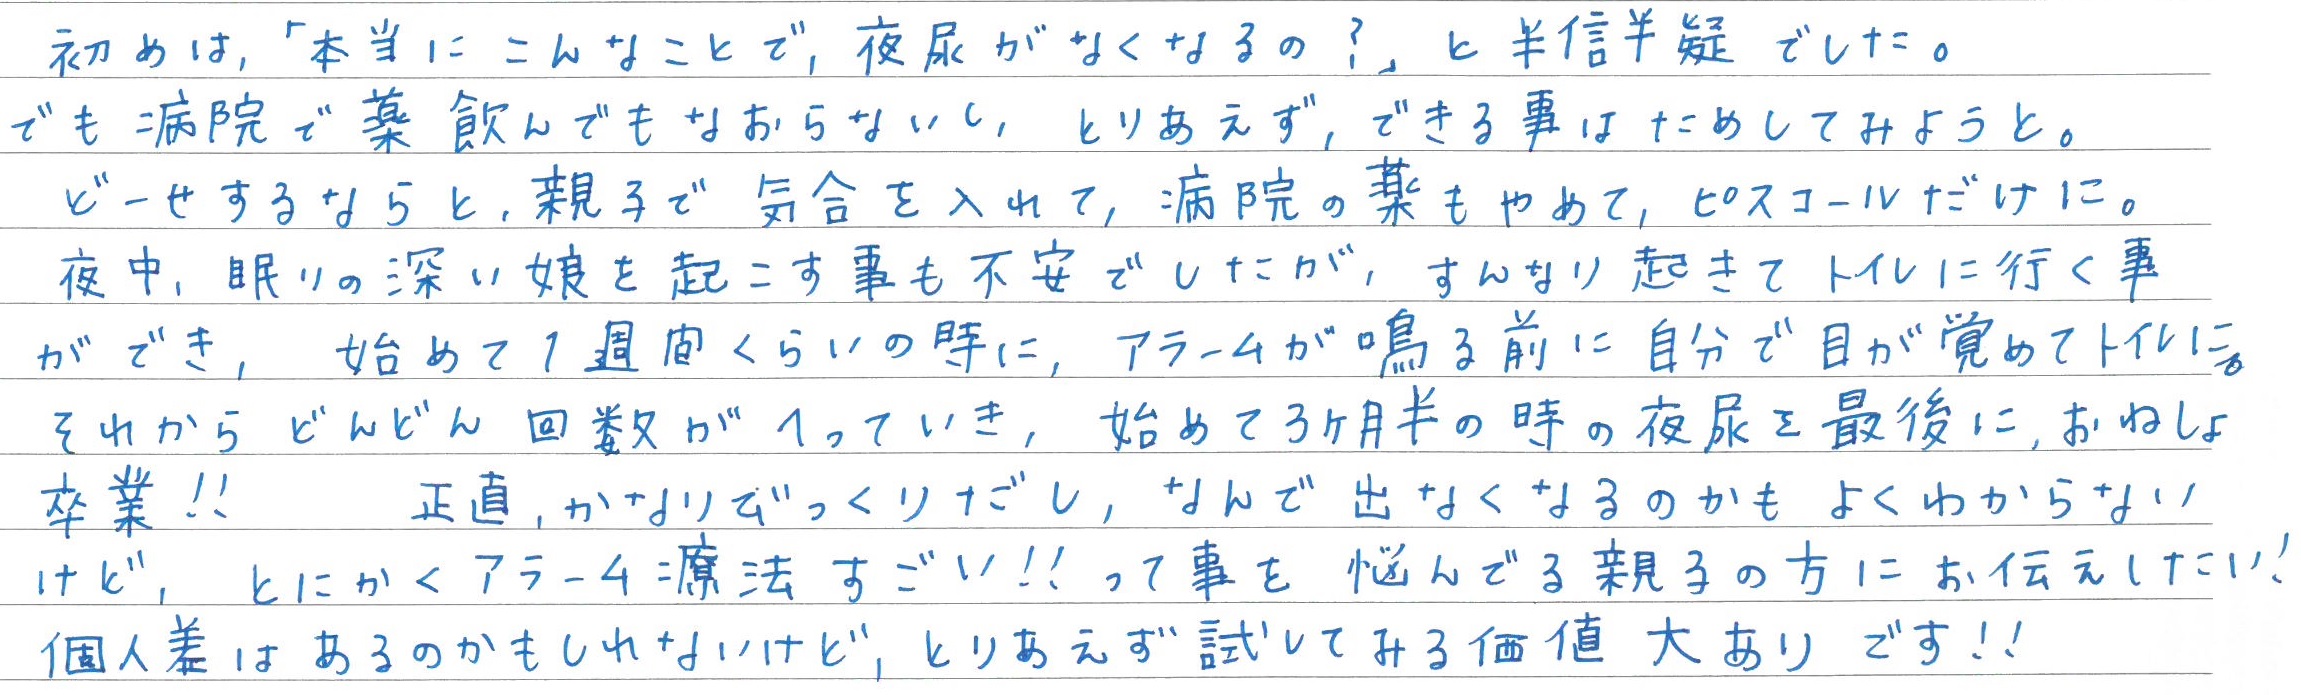 初めは,「本当に こんなことで, 夜尿がなくなるの?」と半信半疑でした。
でも病院で薬飲んでもなおらないし, とりあえず, できる事はためしてみようと。
どーせするならと, 親子で気合を入れて, 病院の薬もやめて, ピスコールだけに。
夜中, 眠りの深い娘を起こす事も不安でしたが, すんなり起きてトイレに行く事
ができ, 始めて1週間くらいの時に, アラームが鳴る前に自分で目が覚めてトイレに。
それからどんどん回数がへっていき, 始めて3ヶ月半の時の夜尿を最後に, おねしょ
卒業!! 正直, かなりびっくりだし, なんで出なくなるのかもよくわからない
けど, とにかくアラーム療法すごい!!って事を悩んでる親子の方にお伝えしたい!
個人差はあるのかもしれないけど, とりあえず試してみる価値大ありです!!